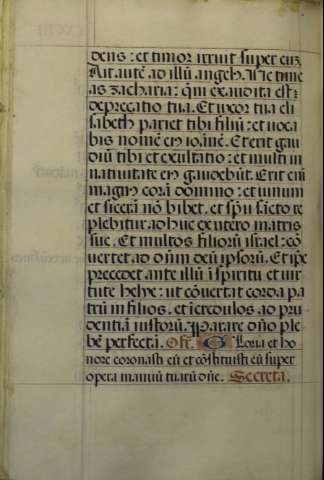 dens: et timor irruit super eū.
Ait autē ad illū angel̄s. Ne time
as zacharia: qm̄ exaudita est
deprecatio tua. Et uxor tua eli
sabeth pariet tibi filiū: et voca
bis nomē eiꝰ ioānē. Et erit gau
diū tibi et exultatio: et multi in
nativitate eiꝰ gaudebūt. Erit eni
magnꝰ corā domino: et vinum
et sicerā nō bibet. et sp̄u sācto re
plebitur adhuc ex utero matris
sue. Et multos filiorū israel: cō
vertet ad dn̄m deū ipsorū. Et ipe
precedet ante illū ī spiritu et vir
tute helye: ut cōvertat corda pa
trū in filios. et īcredulos ad pru
dentiā iustorū. Parare dn̄o ple
bē perfectā. Off. Gloria et ho
nore coronasti eū et cōstituisti eū super
opera manuū tuarū dn̄e. Secreta.